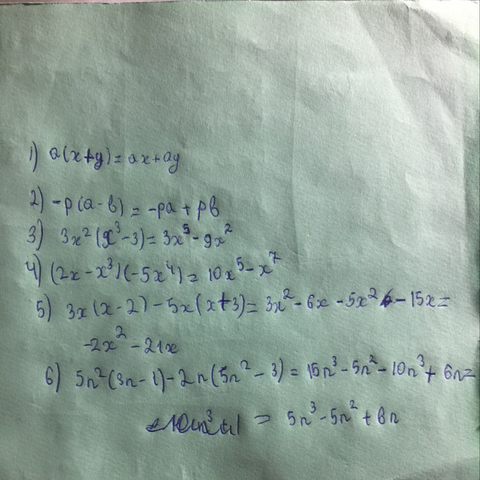 1) a(x+y)=ax+ay
2) -p(a-b)=-pa+pb
3) 3x²(x³-3)=3x⁵-9x²
4) (2x-x³)(-5x⁴)=10x⁵-x⁷
5) 3x(x-2)-5x(x+3)=3x²-6x-5x²-15x=
-2x²-21x
6) 5n²(3n-1)-2n(5n²-3)=15n³-5n²-10n³+6n=
= 5n³-5n²+6n